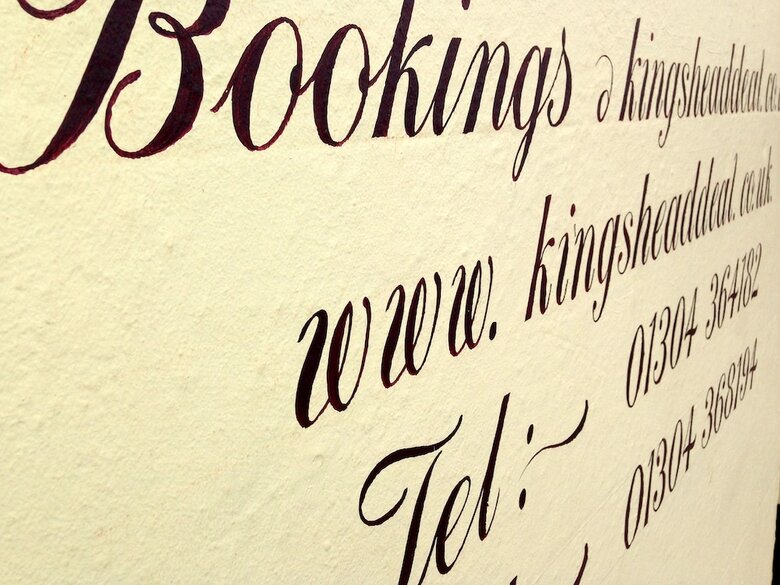 Bookings @ kingsheaddeal.co
www.kingsheaddeal.co.uk
Tel:~ 01304 364182
01304 368194